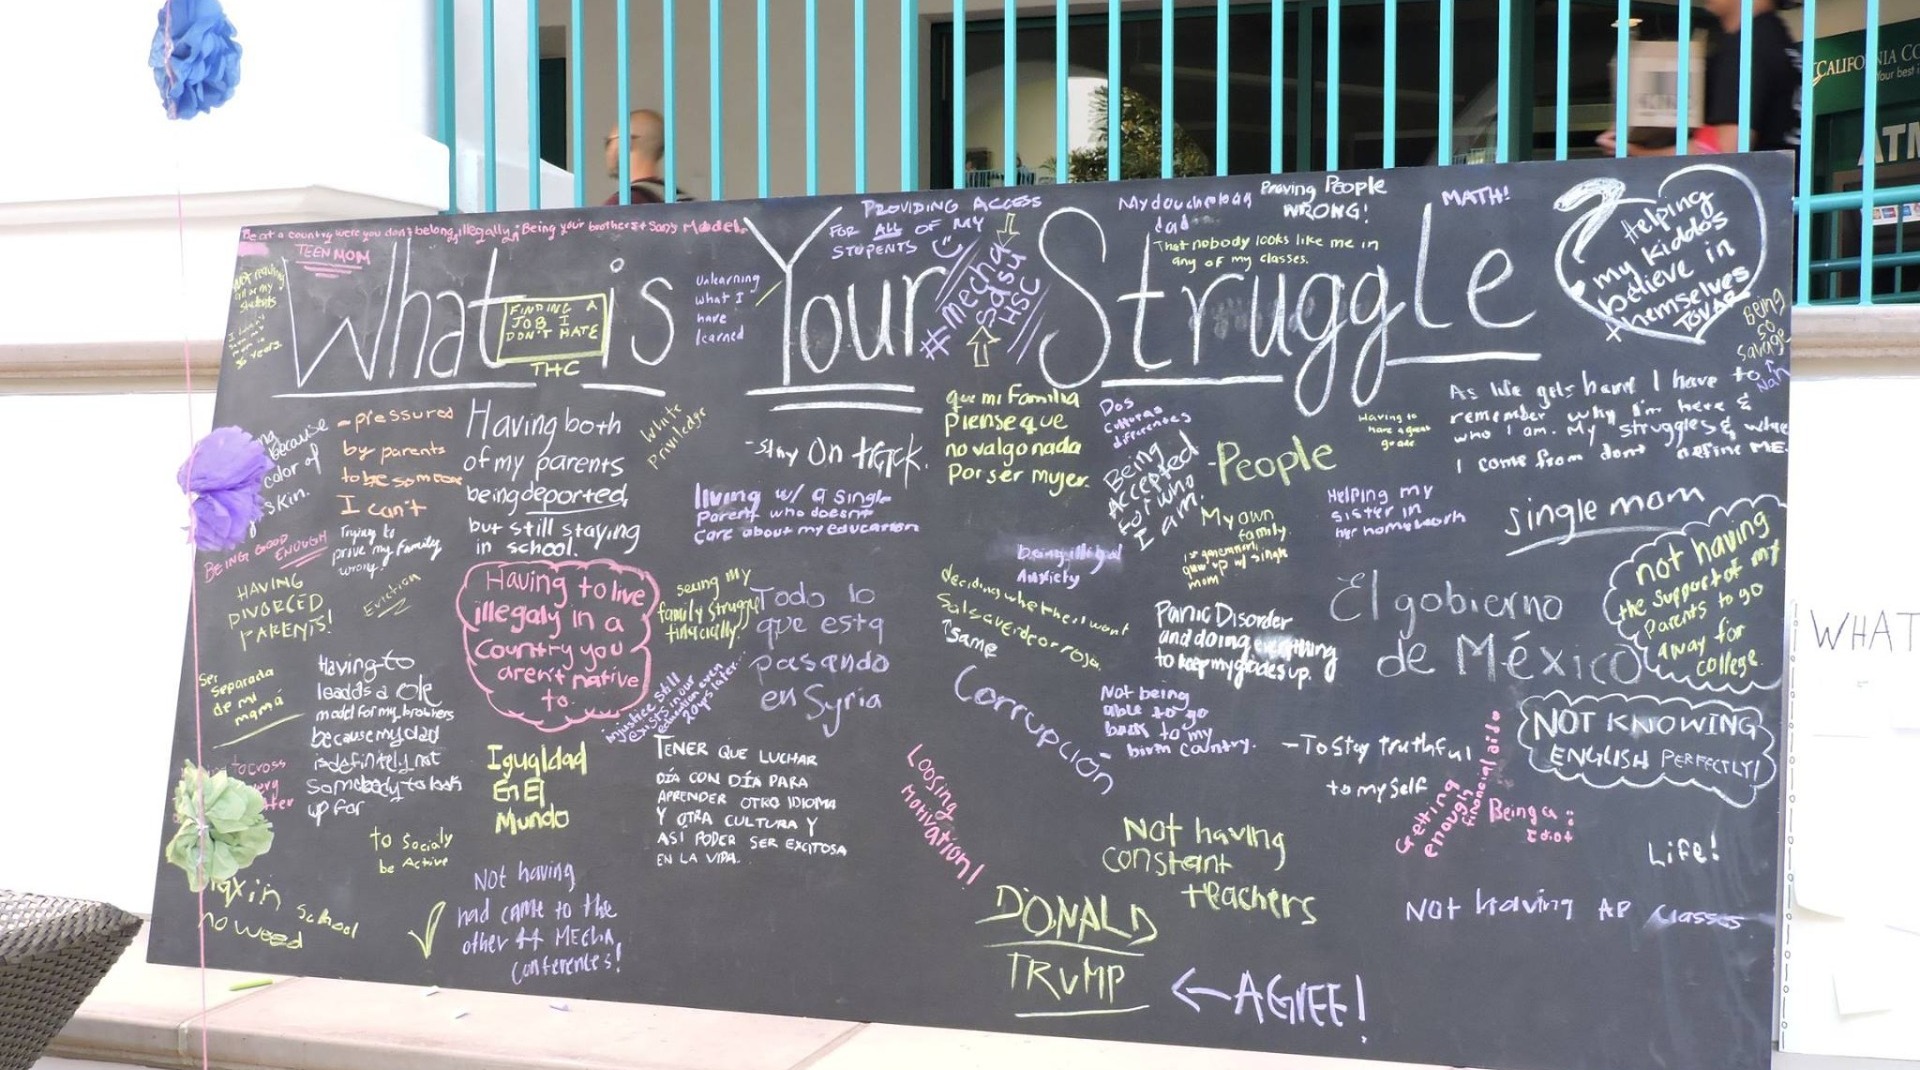 CALIFORNIA
Your best
ATM
Be at a country were you don't belong, illegally
Being your brothers & son's Model.
TEEN MOM
What is Your Struggle
FINDING A
JOB I
DON'T HATE
THC
Unlearning
what I
have
learned
PROVIDING ACCESS
FOR ALL OF MY
STUDENTS
#mecha
Sasu
HSC
My douchebag
dad
Proving People
WRONG!
That nobody looks like me in
any of my classes.
MATH!
Helping
my kiddos
believe in
themselves
TOVAR
Being
so
Savage
Nah
Not reaching
all of my
students
years
because
color of
skin.
BEING GOOD
ENOUGH
- pressured
by parents
to be someone
I can't
Trying to
prove my family
wrong.
Having both
of my parents
being deported,
but still staying
in school.
White
Priviledge
- Stay On track.
living w/ a single
Parent who doesnt
care about my education
que mi Familia
Piense que
no valgo nada
Por ser mujer.
Dos
Culturas
differences
Being
Accepted
For who
I am.
- People
Having to
have a great
grade
As life gets hard I have to
remember why I'm here &
who I am. My struggles & where
I come from dont define ME.
My own
family.
1st generation,
grew up w/ single
mom
Helping my
sister in
her homework
single mom
not having
the support of my
Parents to go
away for
college.
HAVING
DIVORCED
PARENTS!
Eviction
Having to live
illegaly in a
Country you
aren't native
to.
seeing my
family struggle
financially.
Todo lo
que esta
pasando
en Syria
being illegal
Anxiety
deciding whether I want
Salsa verde or roja.
↑same
Panic Disorder
and doing everything
to keep my grades up.
El gobierno
de México
Ser
Separada
de mi
mamá
Having to
leadas a role
model for my brothers
because my dad
is definitely not
Somebody to look
up for
injustice still
exists in our
education even
20 yrs later...
Corrupción
Not being
able to go
back to my
birth country.
- To stay truthful
to myself
NOT KNOWING
ENGLISH PERFECTLY!
to cross
Igualdad
En El
Mundo
TENER QUE LUCHAR
DÍA CON DÍA PARA
APRENDER OTRO IDIOMA
Y OTRA CULTURA Y
ASÍ PODER SER EXCITOSA
EN LA VIDA.
Loosing
Motivation!
Getting
enough
financial aid
Being a
Idiot
Life!
to Socialy
be Active
Not having
constant
teachers
in school
no weed
Not having
had came to the
other 44 MEChA
Conferences!
DONALD
TRUMP
←AGREE!
Not having AP classes
WHAT